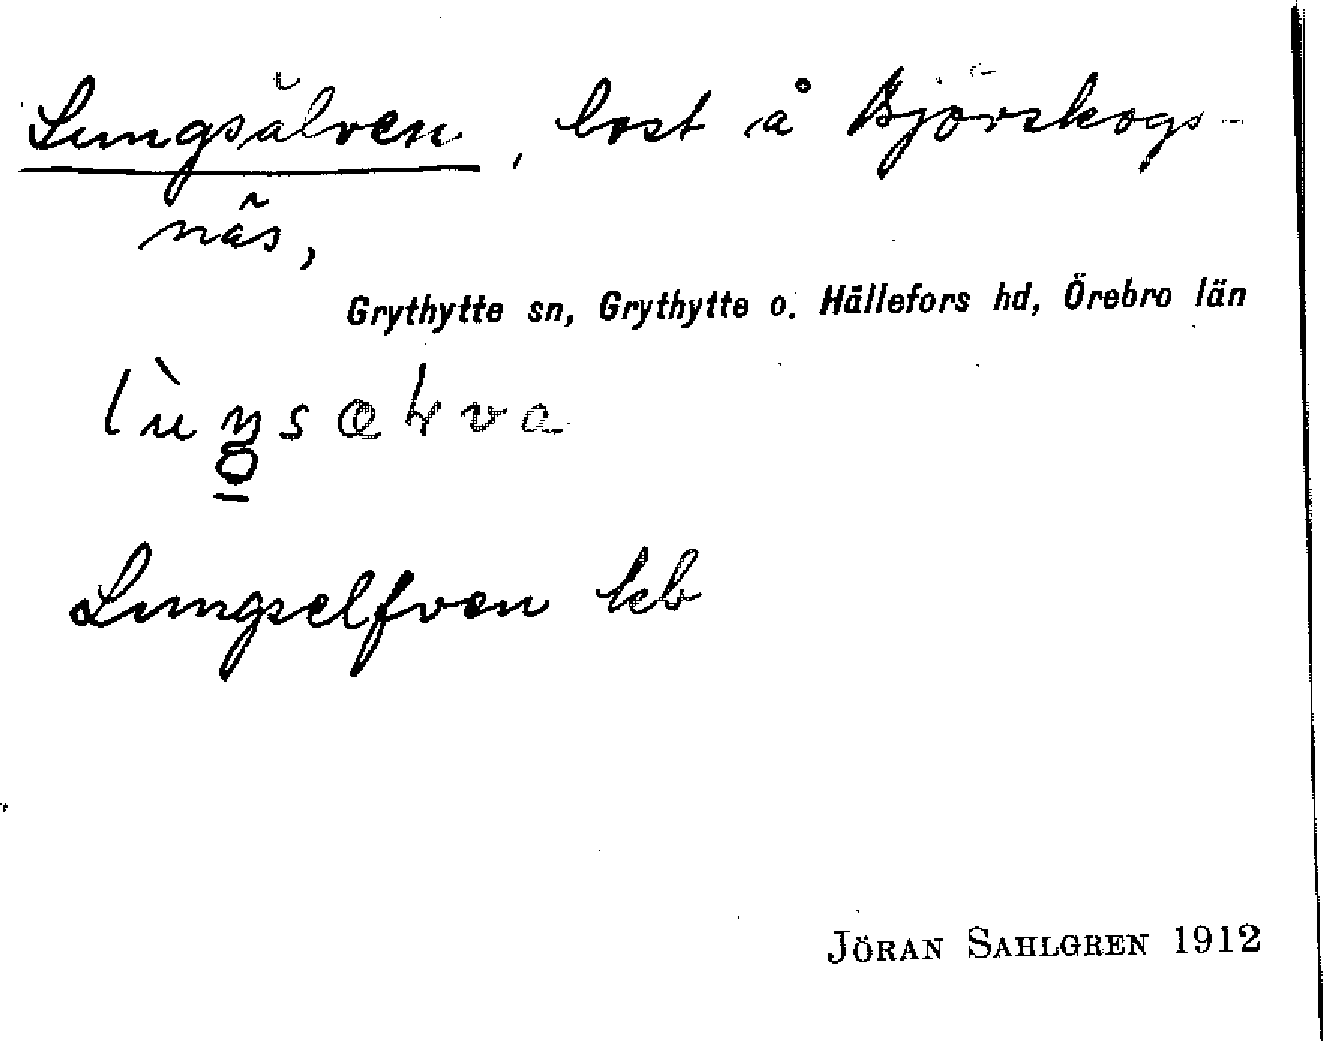 Lungsälven, bost å Björskogs-
näs,
Grythytte sn, Grythytte o. Hällefors hd, Örebro län
Lungselfven kb
JÖRAN SAHLGREN 1912